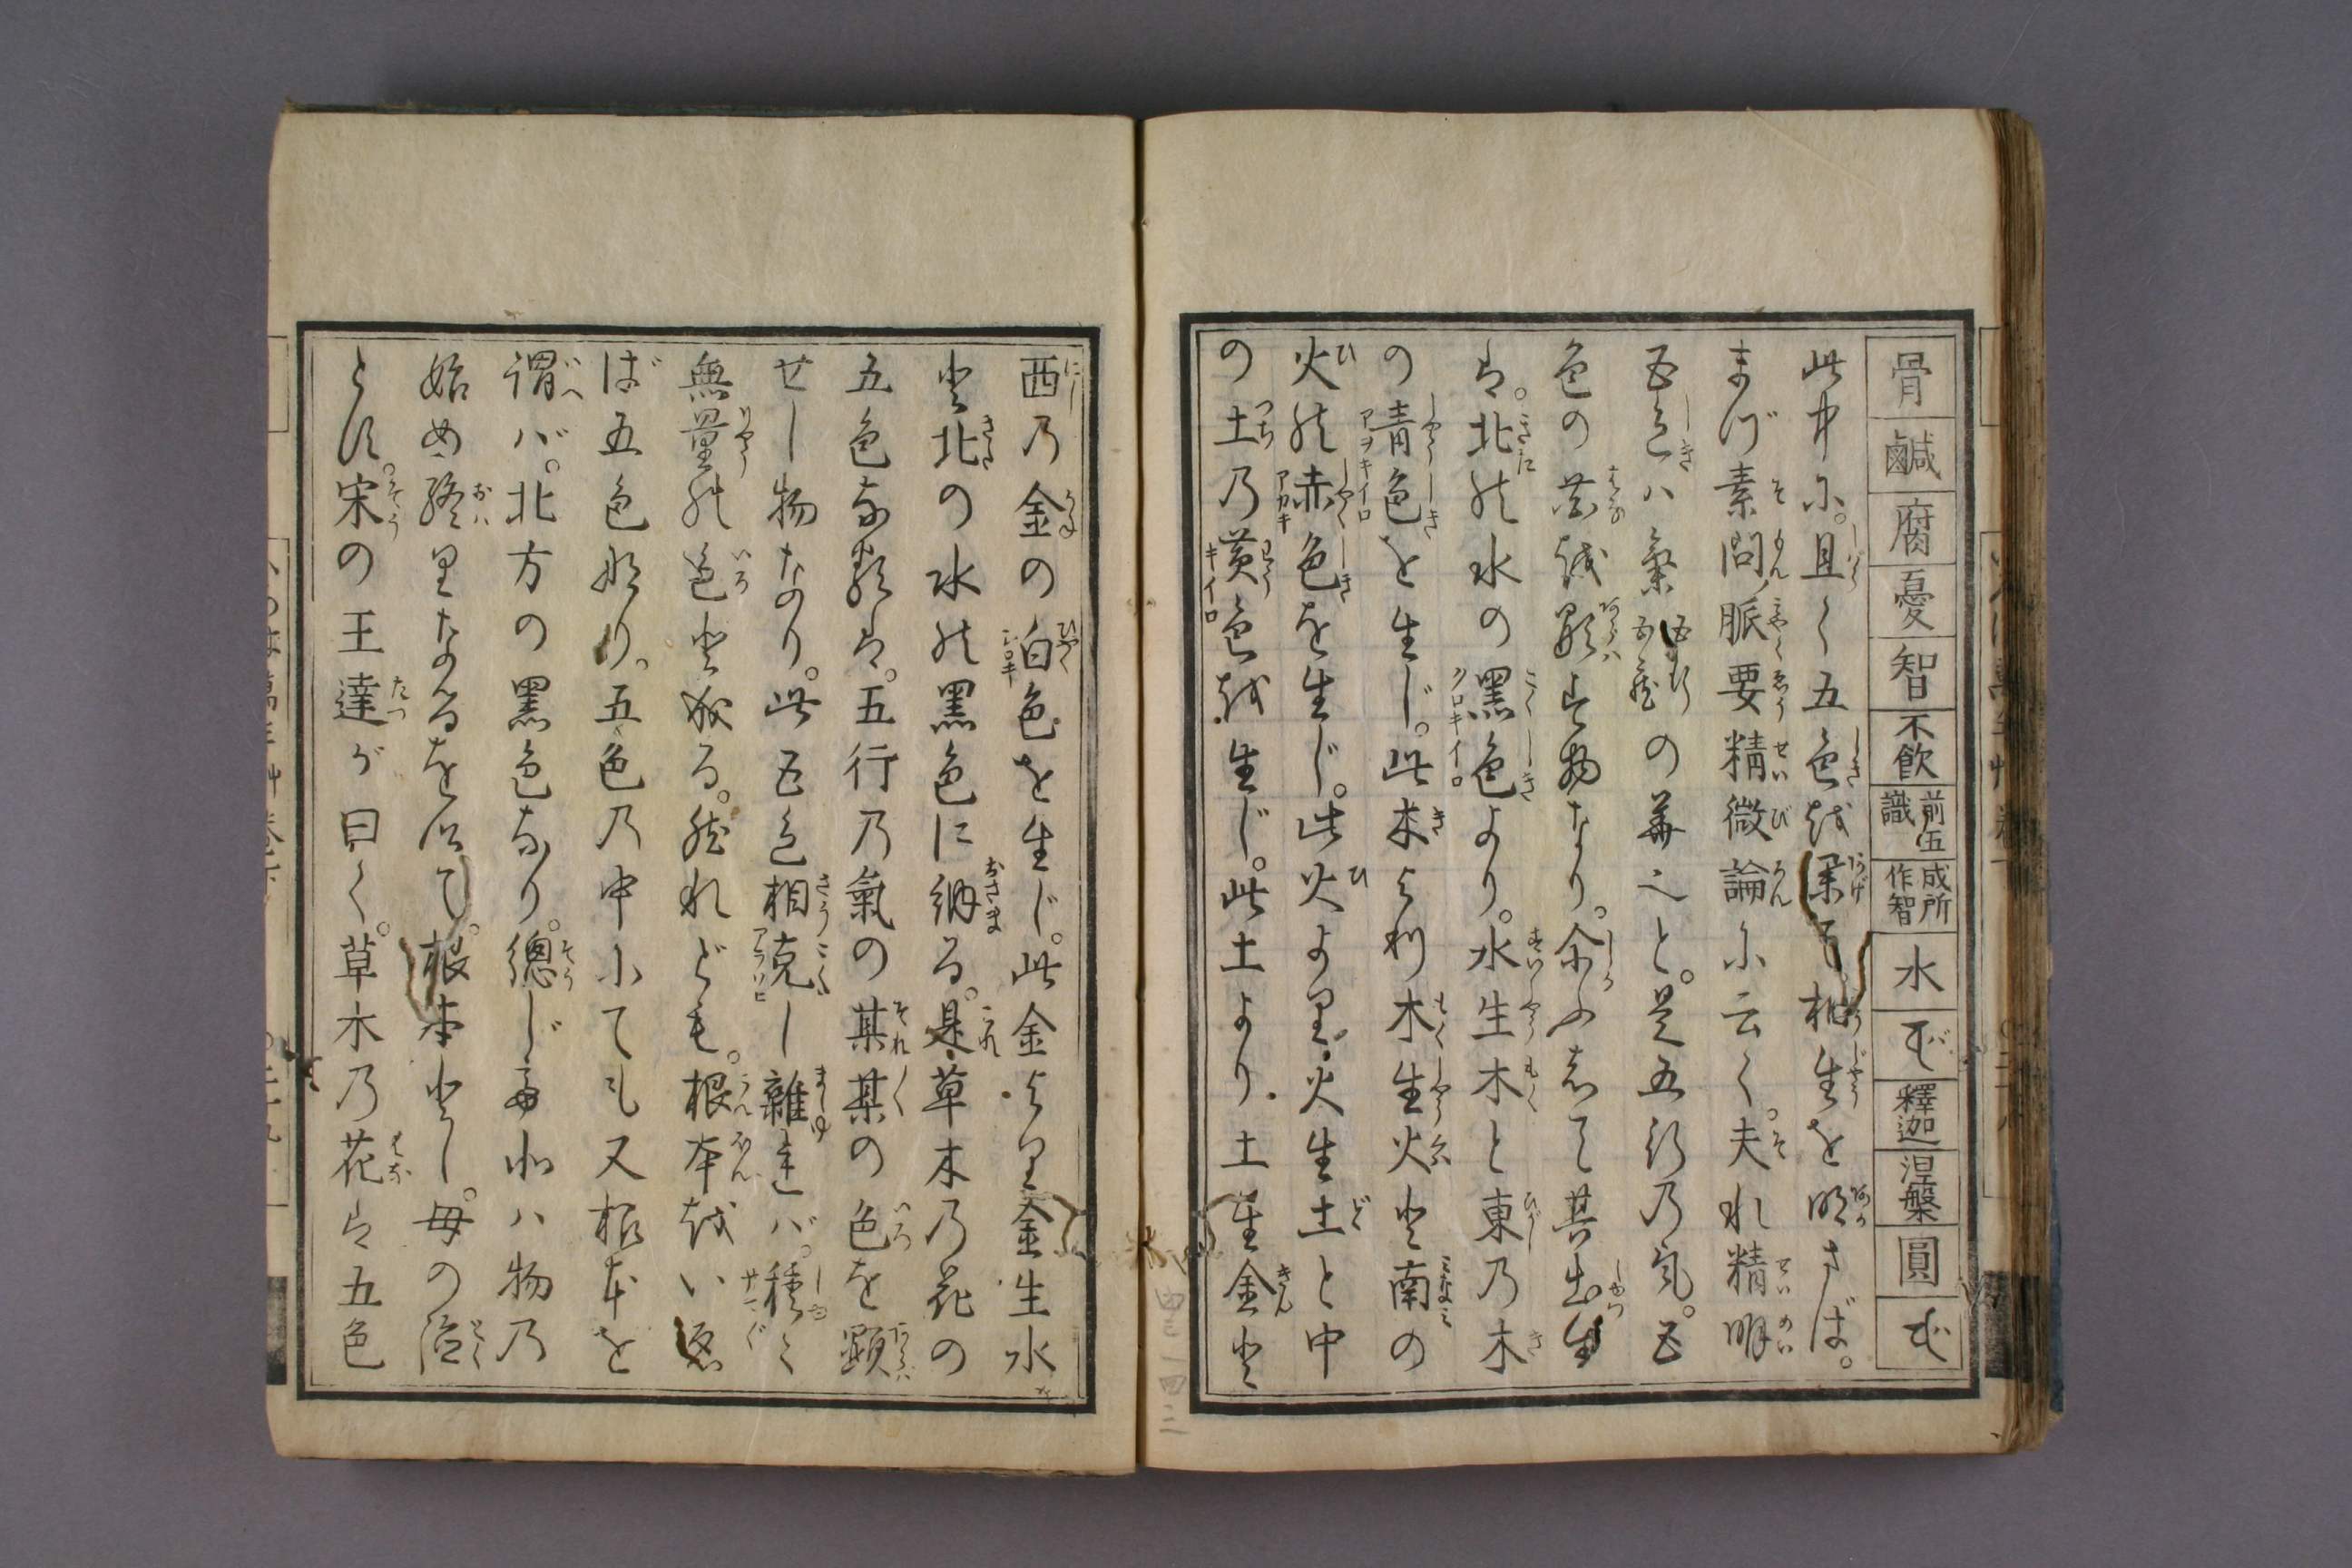 骨 鹹 腐 憂 智 不飲 前五識 成所作智 水 釋迦 涅槃 圓
此中に。且く五色を挙て。相生を明さば。
まづ素問脈要精微論に云く。夫れ精明
五色ハ氣の華之と。是五行乃氣。五
色の花越顕す物なり。余ふして其出生
は。北能水の黒色より。水生木と東乃木
の青色を生じ。此木より木生火と南の
火能赤色を生じ。此火より火生土と中
の土乃黄色越生じ。此土より土生金と
西乃金の白色を生じ。此金より金生水
と北の水能黒色に納る。是草木乃花の
五色な類は。五行乃氣の某某の色を顕
せし物なり。此五色相克し雜まれバ。種く
無量能色と成る。然れども。根本越い
ば五色なり。五色乃中にても又根本を
謂バ。北方の黒色なり。總じて水ハ物乃
始め終里なるを以て。根本とし。毎の
とす。宋の王達が曰く。草木乃花は五色